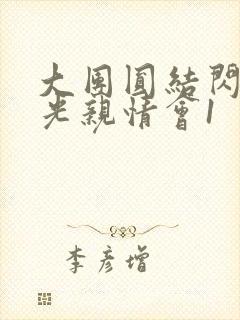 大團圓結閃
光親情會1
李彦增